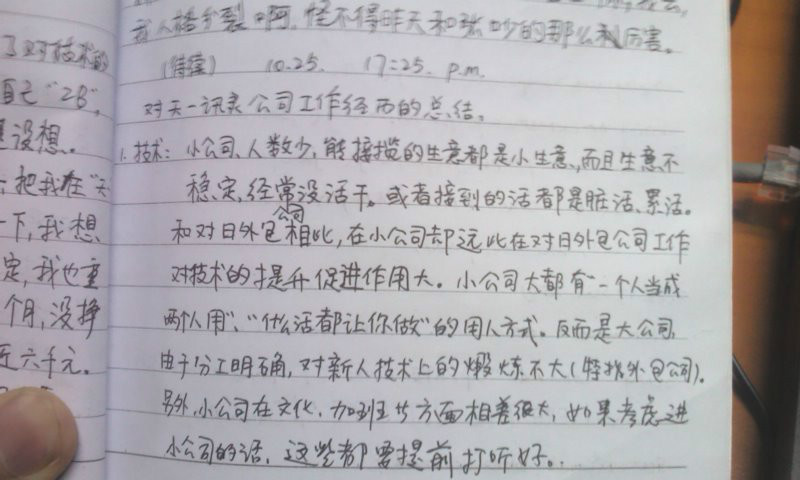 了对技术的
自己"2B",
没想.
把我在"天
一下,我想
定,我也重
个月,没挣
近六千元.
人格分裂啊,怪不得昨天和张吵的那么利厉害.
(待续) 10.25. 17:25. p.m.
对天一讯灵公司工作经历的总结.
1.技术:小公司,人数少,能接揽的生意都是小生意,而且生意不
稳定,经常没活干。或者接到的活都是脏活、累活。
和对日外包公司相比,在小公司却远比在对日外包公司工作
对技术的提升促进作用大。小公司大都有"一个人当成
两个人用"、"什么活都让你做"的用人方式。反而是大公司,
由于分工明确,对新人技术上的煅炼不大(特指外包公司).
另外,小公司在文化、加班等方面相差很大,如果考虑进
小公司的话,这些都要提前打听好..